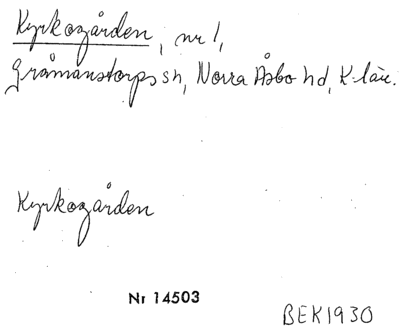 Kyrkogården, nr 1,
Gråmanstorps sn, Norra Åsbo hd, K-län.
Kyrkogården
Nr 14503
BEK1930